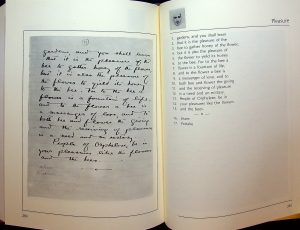 gardens, and you shall learn
that it is the pleasure of the
bee to gather honey of the flower,
but it is also the pleasure of
the flower to yield its honey
to the bee. For to the bee a
flower is a fountain of life,
and to the flower a bee is
a messenger of love, and to
both bee and flower the giving
and the receiving of pleasure
is a need and an ecstasy.
People of Orphalese, be in
your pleasures like the flower
and the bees.
Pleasure
1. gardens, and you shall learn
2. that it is the pleasure of the
3. bee to gather honey of the flower,
4. but it is also the pleasure of
5. the flower to yield its honey
6. to the bee. For to the bee a
7. flower is a fountain of life,
8. and to the flower a bee is
9. a messenger of love, and to
10. both bee and flower the giving
11. and the receiving of pleasure
12. is a need and an ecstasy.
13. People of Orphalese, be in
14. your pleasures like the flower
15. and the bees.